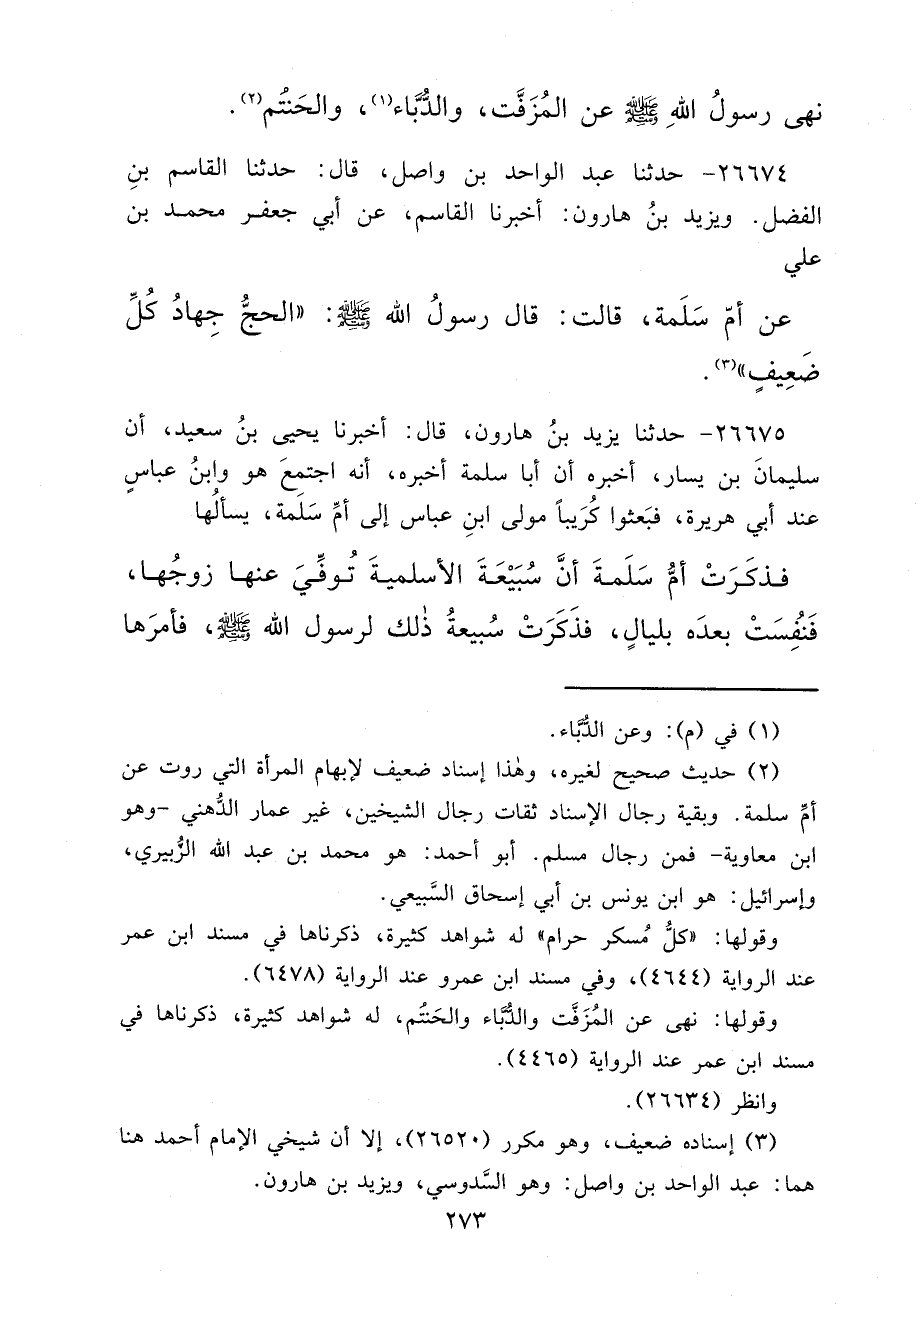 نهى رسولُ اللهِ ﷺ عن المُزَفَّت، والدُّبَّاء(١)، والحَنتُم(٢).
٢٦٦٧٤- حدثنا عبد الواحد بن واصل، قال: حدثنا القاسم بنِ
الفضل. ويزيد بنُ هارون: أخبرنا القاسم، عن أبي جعفر محمد بن
علي
عن أمّ سَلَمة، قالت: قال رسولُ الله ﷺ: «الحجُّ جِهادُ كُلِّ
ضَعِيفٍ»(٣).
٢٦٦٧٥- حدثنا يزيد بنُ هارون، قال: أخبرنا يحيى بنُ سعيد، أن
سليمانَ بن يسار، أخبره أن أبا سلمة أخبره، أنه اجتمعَ هو وابنُ عباسٍ
عند أبي هريرة، فبَعثوا كُرَيباً مولى ابنِ عباس إلى أمِّ سَلَمة، يسألُها
فذكَرَتْ أمُّ سَلَمةَ أنَّ سُبَيْعَةَ الأسلميةَ تُوفِّيَ عنها زوجُها،
فَنُفِسَتْ بعدَه بليالٍ، فذَكَرَتْ سُبيعةُ ذٰلك لرسول الله ﷺ، فأمرَها
(١) في (م): وعن الدُّبَّاء.
(٢) حديث صحيح لغيره، وهٰذا إسناد ضعيف لإبهام المرأة التي روت عن
أمِّ سلمة. وبقية رجال الإسناد ثقات رجال الشيخين، غير عمار الدُّهني -وهو
ابن معاوية- فمن رجال مسلم. أبو أحمد: هو محمد بن عبد الله الزُّبيري،
وإسرائيل: هو ابن يونس بن أبي إسحاق السَّبيعي.
وقولها: «كلُّ مُسكر حرام» له شواهد كثيرة، ذكرناها في مسند ابن عمر
عند الرواية (٤٦٤٤)، وفي مسند ابن عمرو عند الرواية (٦٤٧٨).
وقولها: نهى عن المُزفَّت والدُّبَّاء والحَنتُم، له شواهد كثيرة، ذكرناها في
مسند ابن عمر عند الرواية (٤٤٦٥).
وانظر (٢٦٦٣٤).
(٣) إسناده ضعيف، وهو مكرر (٢٦٥٢٠)، إلا أن شيخي الإمام أحمد هنا
هما: عبد الواحد بن واصل: وهو السَّدوسي، ويزيد بن هارون.
٢٧٣